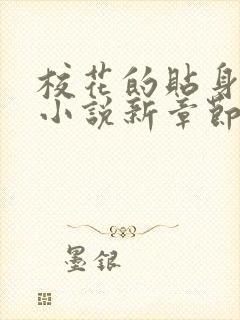 校花的貼身
小說新章節
墨銀